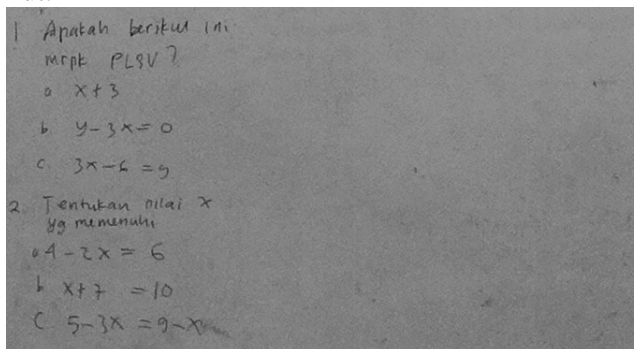 1 Apakah berikut ini
mrpk PLSV?
a x + 3
b y - 3x = 0
c. 3x - 6 = 9
2. Tentukan nilai x
yg memenuhi
a 4 - 2x = 6
b x + 7 = 10
C 5 - 3x = 9 - x